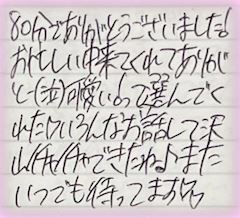 80分でありがとうございました!
お忙しい中来てくれてありが
と(泣)可愛いって選んでく
れたりいろんなお話して沢
山イチャイチャできたね♪また
いつでも待ってます